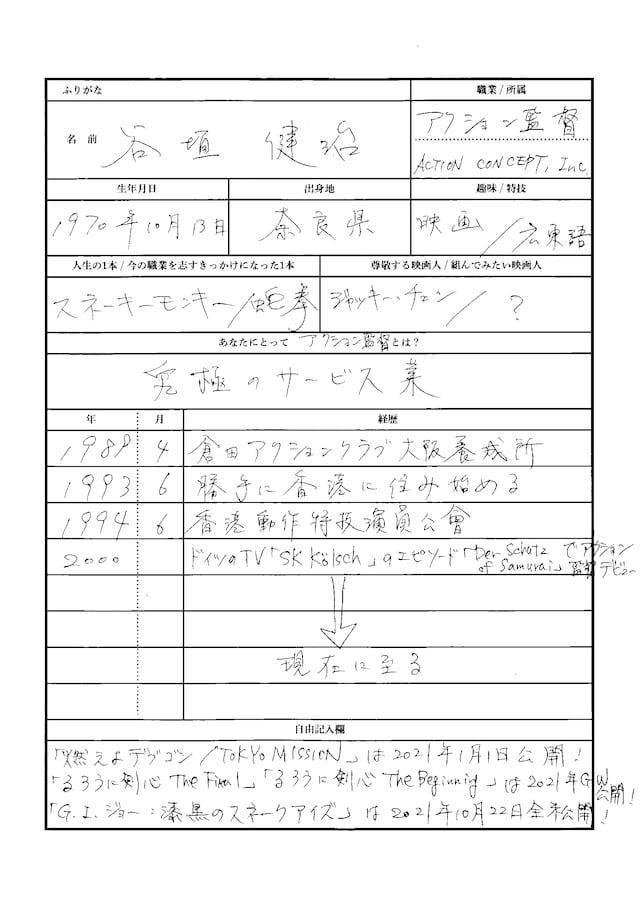 ふりがな
職業/所属
名前 谷垣 健治
アクション監督
ACTION CONCEPT, Inc.
生年月日 出身地 趣味/特技
1970年10月13日 奈良県 映画/広東語
人生の1本/今の職業を志すきっかけになった1本 尊敬する映画人/組んでみたい映画人
スネーキーモンキー/蛇拳 ジャッキー・チェン/?
あなたにとって アクション監督 とは?
究極のサービス業
年 月 経歴
1989 4 倉田アクションクラブ大阪養成所
1993 6 勝手に香港に住み始める
1994 6 香港動作特技演員公會
2000 ドイツのTV「SK Kölsch」のエピソード「Der Schatz of Samurai」でアクション監督デビュー
現在に至る
自由記入欄
「燃えよデブゴン/TOKYO MISSION」は2021年1月1日公開!
「るろうに剣心 The Final」「るろうに剣心 The Beginnig」は2021年GW公開!
「G.I.ジョー:漆黒のスネークアイズ」は2021年10月22日全米公開!